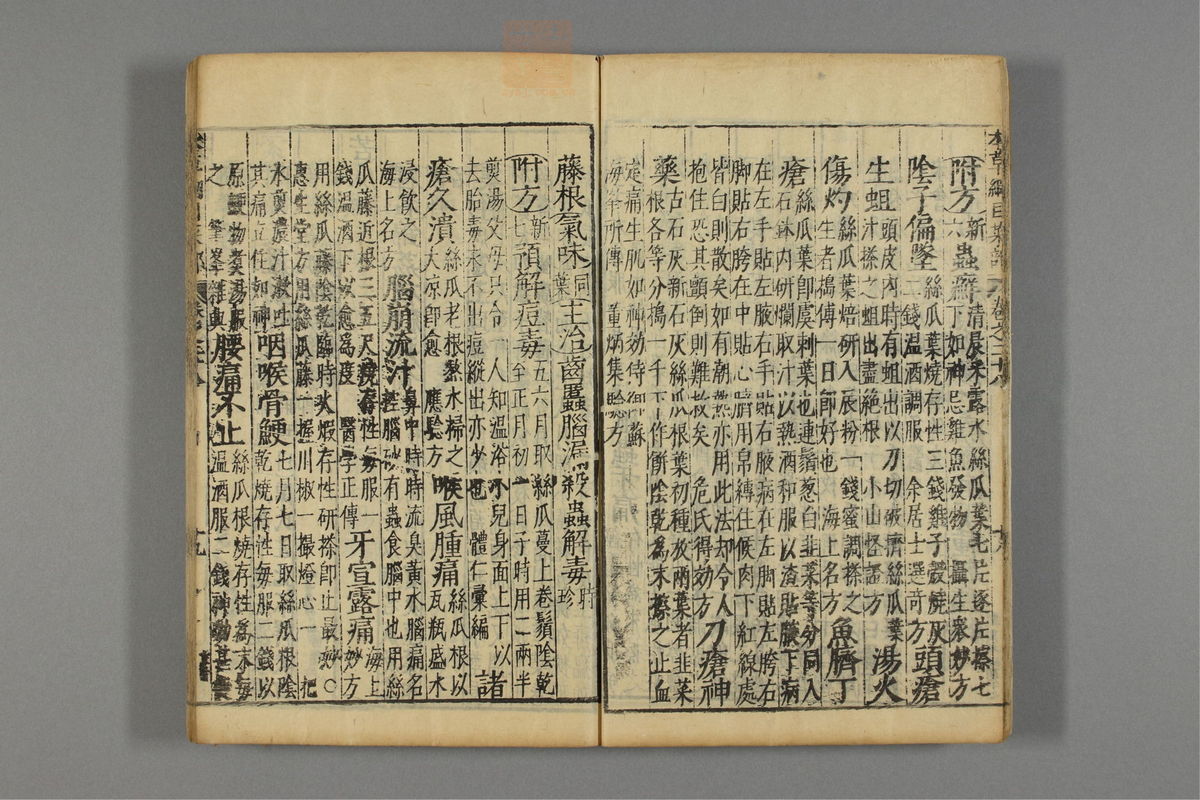 附方新六蟲癬清晨采露水絲瓜葉七片逐片擦七下如神忌雞魚發物攝生衆妙方
陰子偏墜絲瓜葉燒存性三錢雞子殼燒灰二錢溫酒調服余居士選奇方頭瘡
生蛆頭皮內時有蛆出以刀切破擠絲瓜葉汁搽之蛆出盡絕根小山怪證方湯火
傷灼生絲瓜葉焙研入辰粉一錢蜜調搽之生者搗傅一日卽好也海上名方魚臍丁
瘡絲瓜葉卽虞刺葉也連鬚葱白韭菜等分同入石鉢內研爛取汁以熱酒和服以渣貼腋下病
在左手貼左腋右手貼右腋病在左脚貼左胯右
脚貼右胯在中貼心臍用帛縛住候肉下紅線處
皆白則散矣如有潮熱亦用此法却令人
抱住恐其顫倒則難救矣危氏得效方刀瘡神
藥古石灰新石灰絲瓜根葉初種放兩葉者韭菜根各等分搗一千下作餅陰乾爲末擦之止血
定痛生肌如神効侍御蘇
海峯所傳董炳集驗方
藤根氣味同葉主治齒䘌腦漏殺蟲解毒時珍
附方新七預解痘毒五六月取絲瓜蔓上卷鬚陰乾至正月初一日子時用二兩半
煎湯父母只令一人知溫浴小兒身面上下以
去胎毒永不出痘縱出亦少也體仁彙編諸
瘡久潰絲瓜老根熬水掃之大凉卽愈應驗方喉風腫痛絲瓜根以瓦瓶盛水
浸飲之海上名方腦崩流汁鼻中時時流臭黃水腦痛名控腦砂有蟲食腦中也用絲
瓜藤近根三五尺燒存性每服一
錢溫酒下以愈爲度醫學正傳牙宣露痛海上妙方
用絲瓜藤陰乾臨時火煆存性研搽卽止最妙〇
惠生堂方用絲瓜藤一握川椒一撮燈心一把
水煎濃汁漱吐
其痛立住如神咽喉骨鯁七月七日取絲瓜根陰乾燒存性每服二錢以
原鯁物煮湯服
之筆峯雜興腰痛不止絲瓜根燒存性爲末每溫酒服二錢神効甚捷